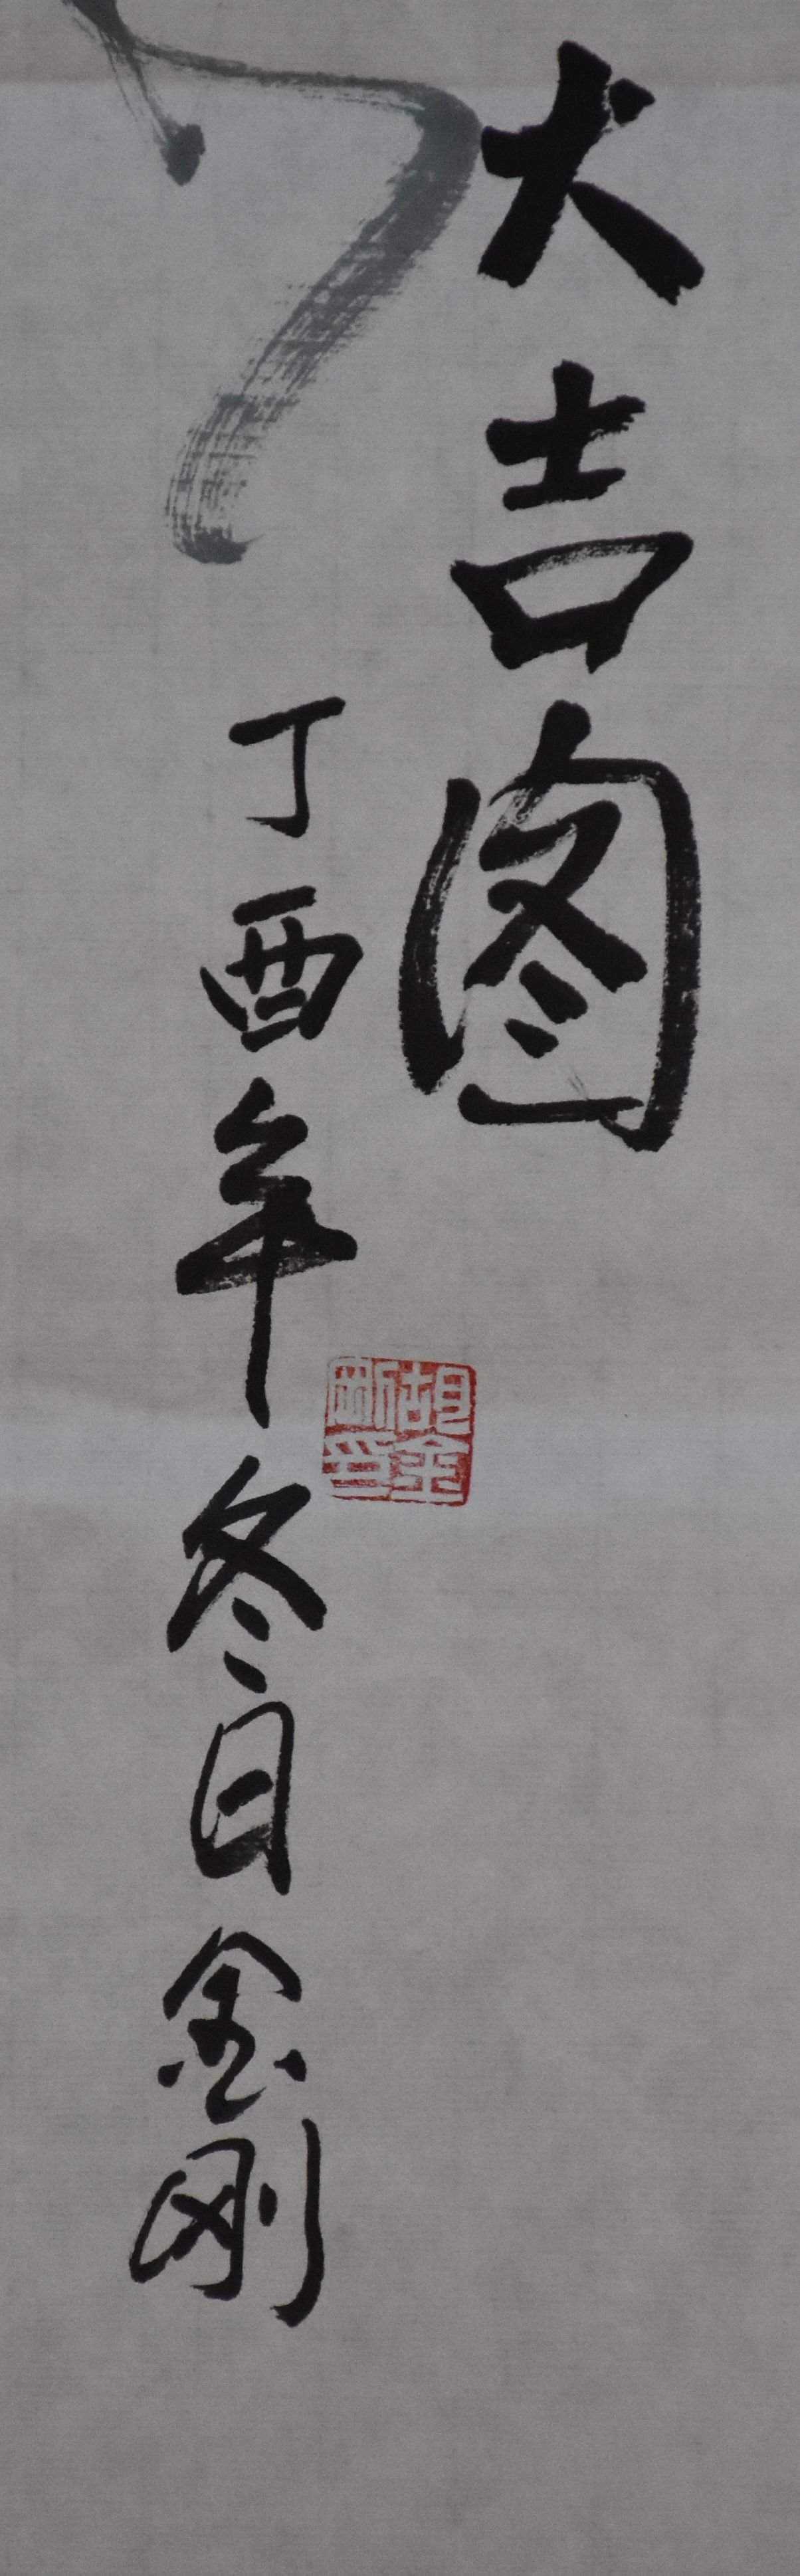 大吉图
丁酉年冬日金刚
胡金